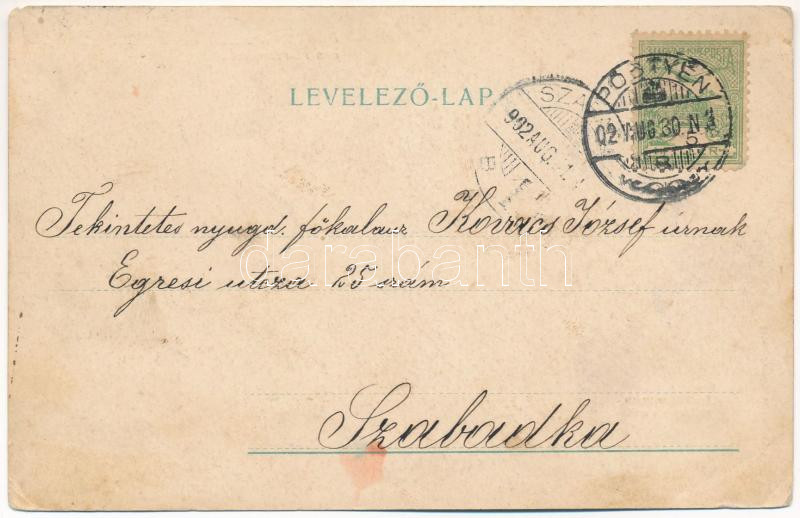 MAGYAR KIR. POSTA
LEVELEZŐ-LAP
PÖSTYÉN
02 AUG 30 N
5
SZA
902 AUG
B
Tekintetes nyugd. főkalauz Kovács József úrnak
Egresi utcza 25 szám
darabanth
Szabadka